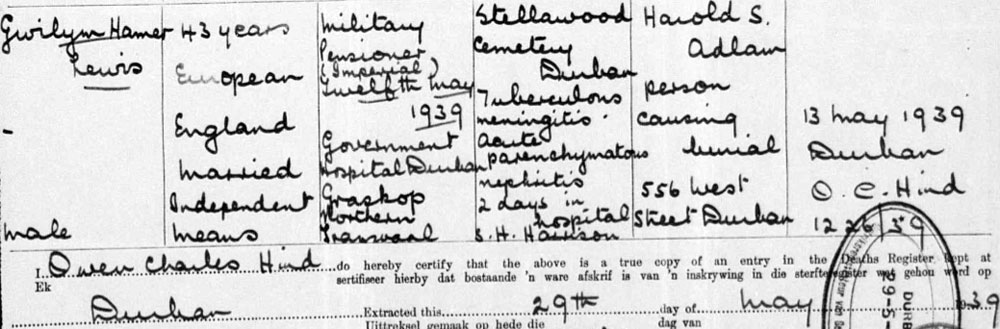 Gwilym Hamer
Lewis
-
male
43 years
European
England
Married
Independent
means
Military
Pensioner
(Imperial)
Twelfth May
1939
Government
Hospital Durban
Graskop
Northern
Transvaal
Stellawood
Cemetery
Durban
Tuberculous
meningitis.
Acute
parenchymatous
nephritis
2 days in
hospital
S. H. Harrison
Harold S.
Adlam
person
causing
burial
556 West
Street Durban
13 May 1939
Durban
O. C. Hind
1226/39
I, Owen Charles Hind do hereby certify that the above is a true copy of an entry in the Deaths Register kept at
Ek sertifiseer hierby dat bostaande 'n ware afskrif is van 'n inskrywing in die sterfteregister wat gehou word op
Durban Extracted this 29th day of May 1939
Uittreksel gemaak op hede die dag van
29-5-